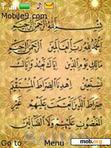 Mobile9.com
بسم الله الرحمن الرحيم
الحمد لله رب العالمين الرحمن الرحيم
مالك يوم الدين إياك نعبد وإياك
نستعين اهدنا الصراط المستقيم
صراط الذين أنعمت عليهم غير
المغضوب عليهم ولا الضالين
Go Menu
mobile9